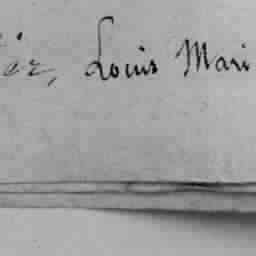 Louis Mari